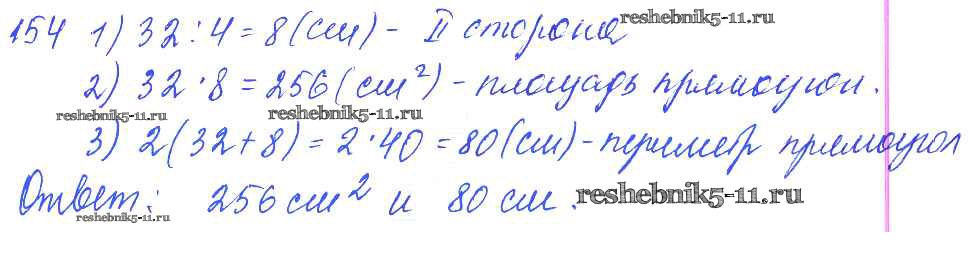 154 1) 32 : 4 = 8 (см) - II сторона
reshebnik5-11.ru
2) 32 · 8 = 256 (см²) - площадь прямоугол.
reshebnik5-11.ru reshebnik5-11.ru
3) 2(32+8) = 2·40 = 80 (см) - периметр прямоугол
Ответ: 256 см² и 80 см.
reshebnik5-11.ru reshebnik5-11.ru